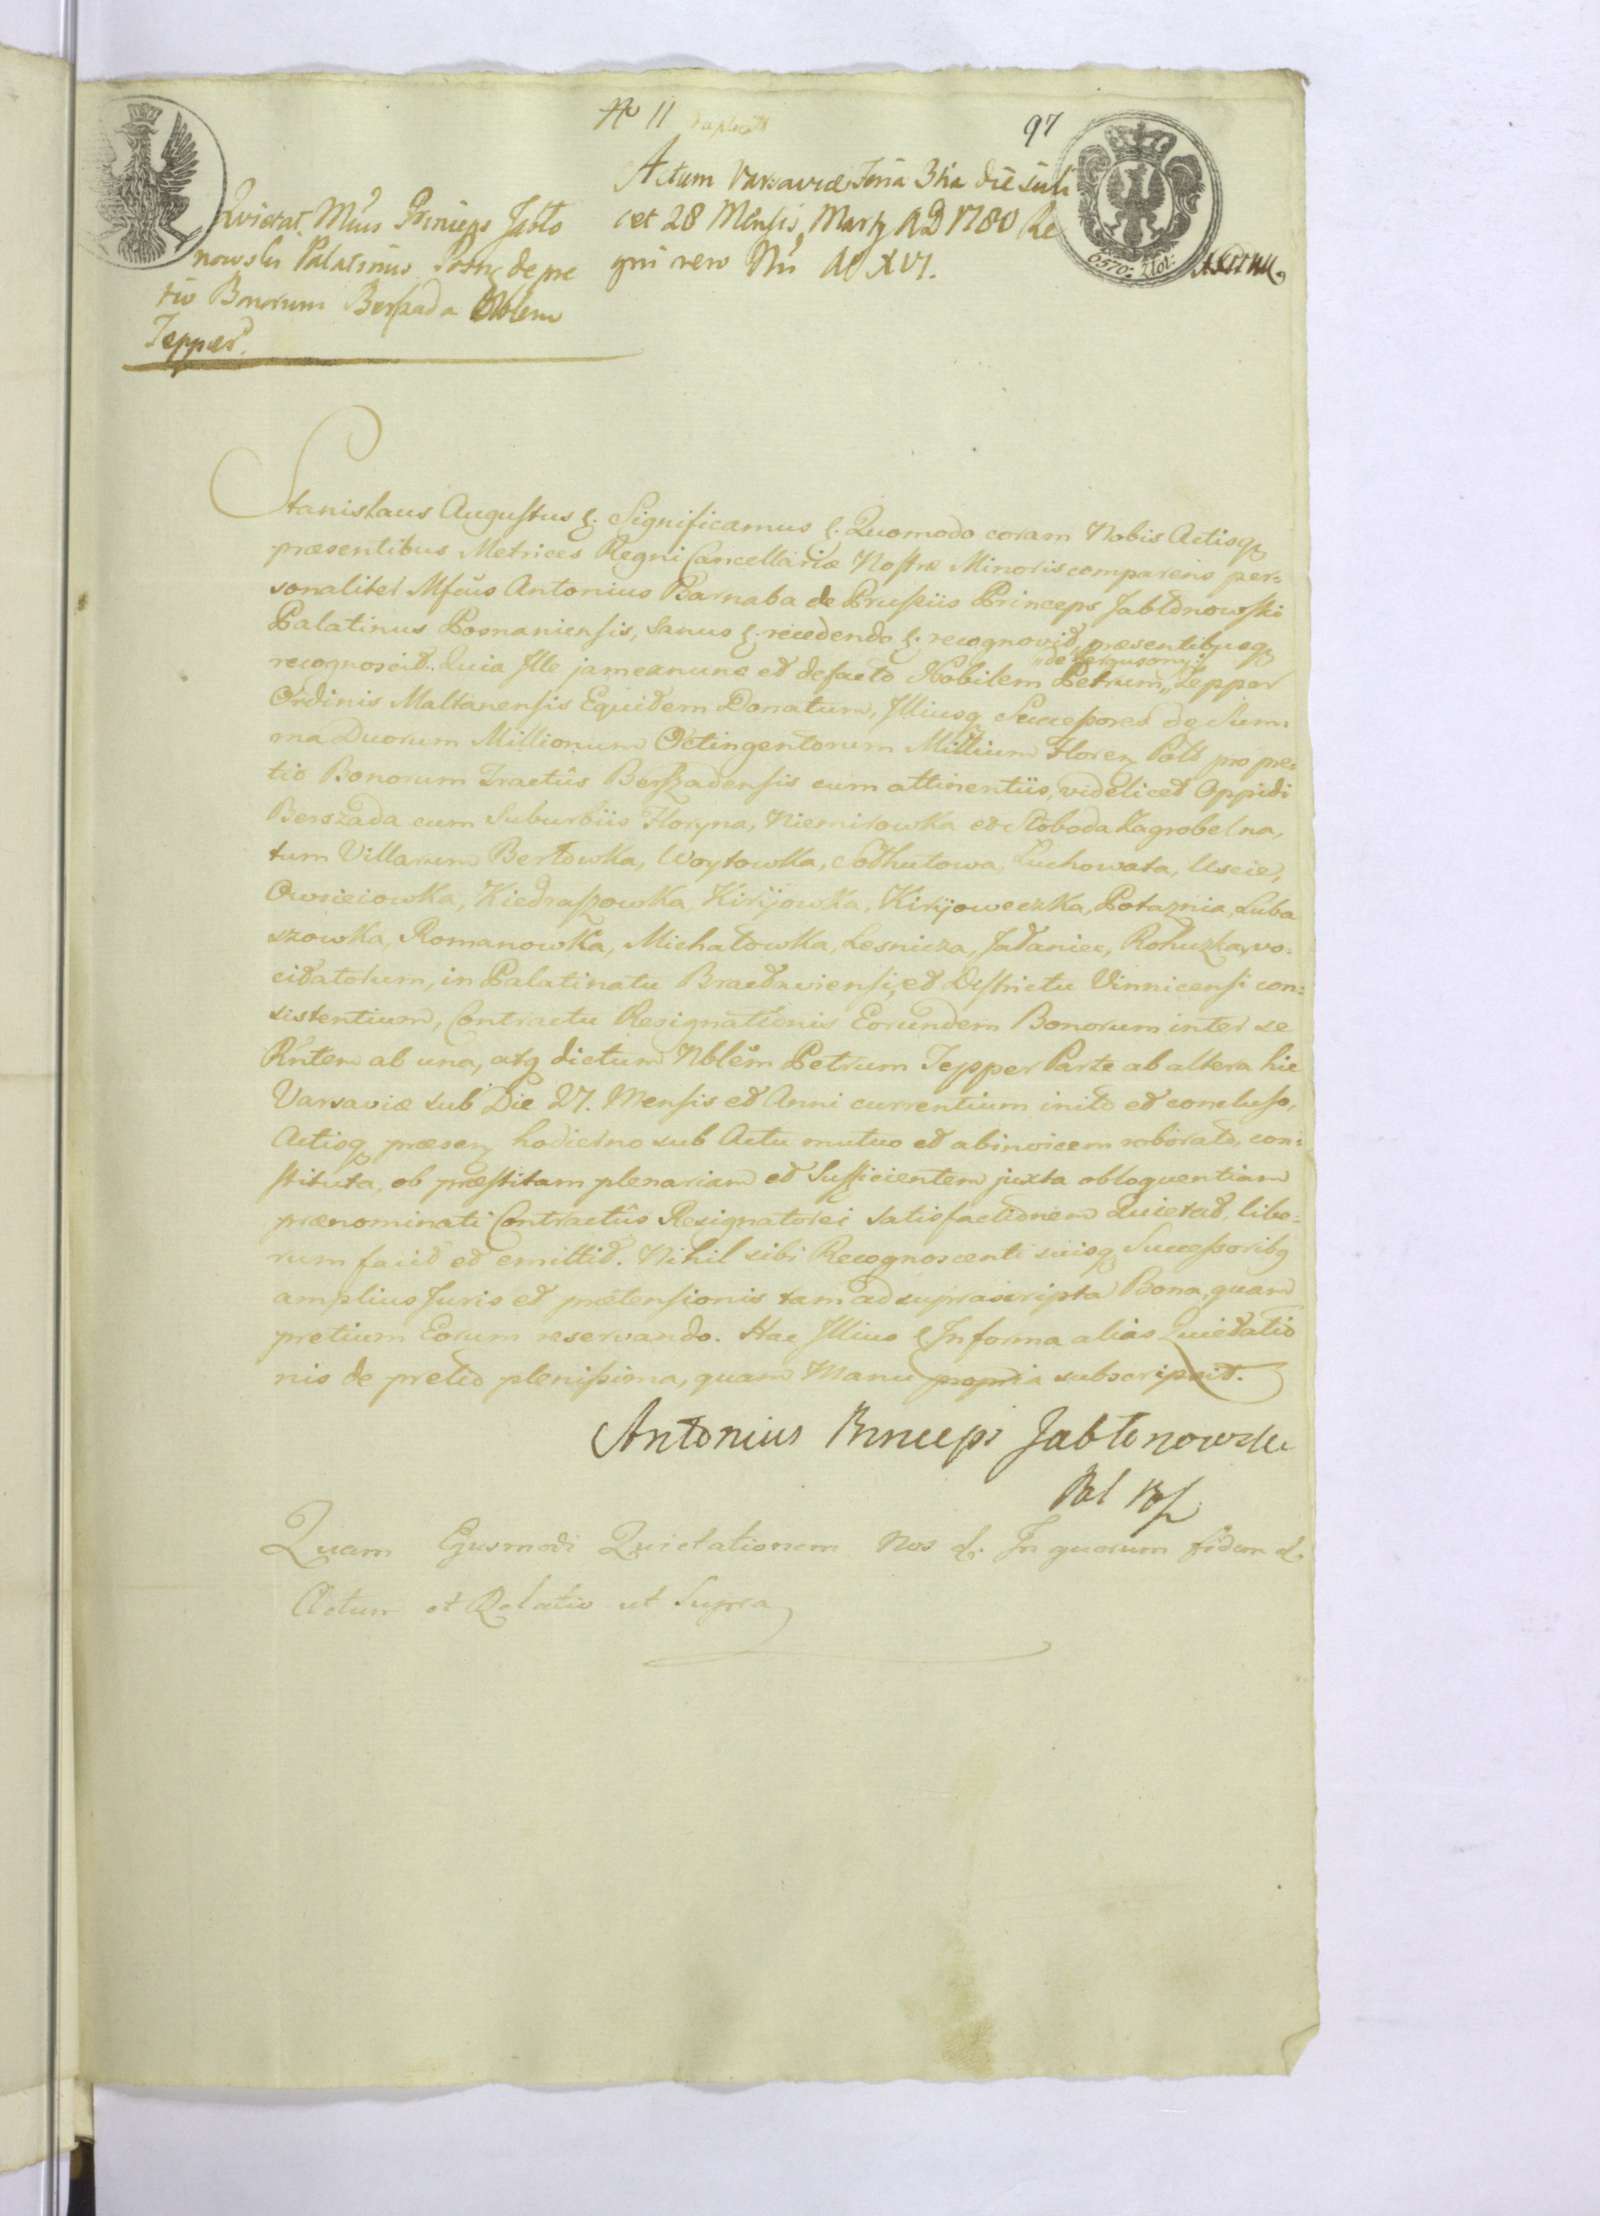 No 11
97
Actum Varsaviæ Feria 3tia die scili
cet 28 Mensis Martij AD 1780 Re
gni vero Nri Ao XVI.
6570: Złot:
Quietat Mfcus Princeps Jabło
nowski Palatinus Posn: de pre
tio Bonorum Berszada Nblem
Tepper.
Stanislaus Augustus &. Significamus &. Quomodo coram Nobis Actisq
præsentibus Metrices Regni Cancellariæ Nostræ Minoris comparens per=
sonaliter Mfcus Antonius Barnaba de Prussiis Princeps Jabłonowski
Palatinus Posnaniensis, sanus &. recedendo &. recognovit, præsentibusq
recognoscit. Quia Ille jam ex nunc et de facto Nobilem Petrum "de Fergusony" Tepper
Ordinis Maltanensis Equidem Donatum, Illiusq Successores de Sum=
ma Duorum Millionum Octingentorum Millium Floren Poll pro pre=
tio Bonorum Tractûs Berszadensis cum attinentiis, videlicet Oppidi
Berszada cum Suburbiis Floryna, Niemirowka et Słoboda Zagrobelna,
tum Villarum Bertowka, Woytowka, Sołhutowa, Luchowata, Uscie,
Owsieiowka, Kiedraszowka, Kiryjowka, Kiryjoweczka, Potaznia, Luba
szowka, Romanowka, Michałowka, Lesnicza, Jałaniec, Rohuzka, vo=
citatorum, in Palatinatu Bracłaviensi, et Districtu Vinnicensi con=
sistentium, Contractu Resignationis Eorundem Bonorum inter se
Rntem ab una, atq dictum Nblem Petrum Tepper Parte ab altera hic
Varsaviæ sub Die 27. Mensis et Anni currentium inito et concluso,
Actisq præsen hodierno sub Actu mutuo et abinvicem roborato, con=
stituta, ob præstitam plenariam et Sufficientem juxta obloquentiam
prænominati Contractûs Resignatorei satisfactionem Quietat, libe=
rum facit et emittit. Nihil sibi Recognoscenti suisq Successoribq
amplius Juris et prætensionis tam ad suprascripta Bona, quam
pretium Eorum reservando. Hac Illius &. In forma alias Quietatio
nis de pretio plenissima, quam Manu propria subscripsit.
Antonius Princeps Jabłonowski
Pal Pos
Quam Ejusmodi Quietationem Nos &. In quorum fidem &.
Actum et Relatio ut Supra